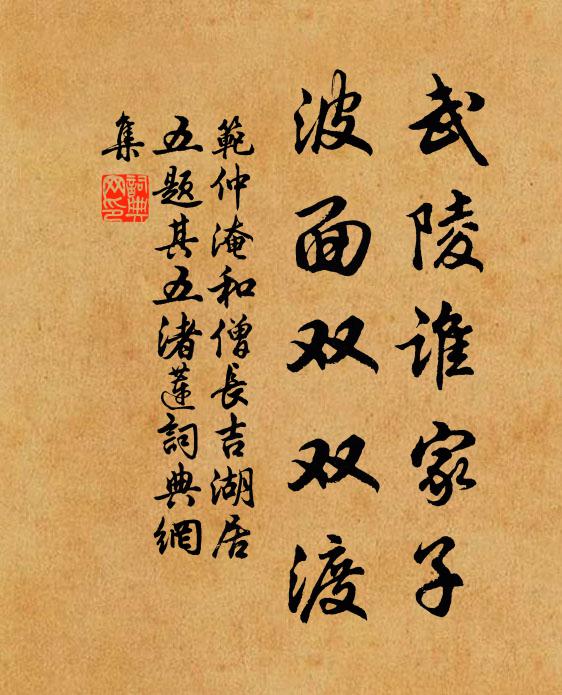 武陵谁家子
波面双双渡
範仲淹和僧長吉湖居
五题其五渚蓮詞典網
集
詞典网印